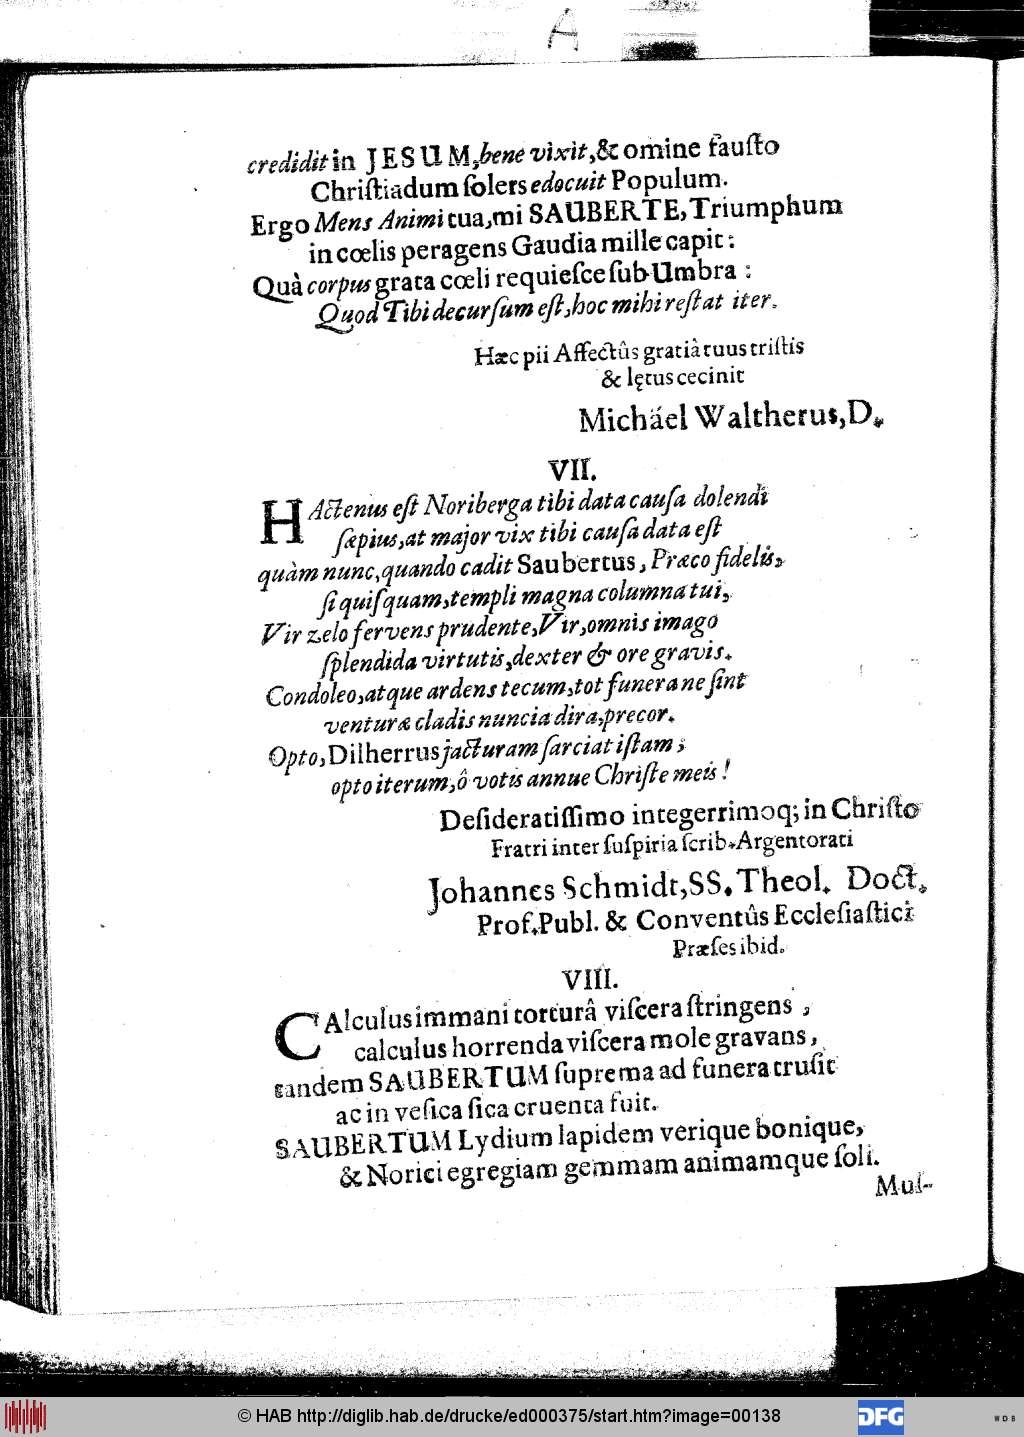 A
credidit in JESUM, bene vixit, & omine fauſto
Chriſtiadum ſolers edocuit Populum.
Ergo Mens Animi tua, mi SAUBERTE, Triumphum
in cœlis peragens Gaudia mille capit:
Quà corpus grata cœli requieſce ſub Umbra:
Quod Tibi decurſum eſt, hoc mihi reſtat iter.
Hæc pii Affectûs gratiâ tuus triſtis
& lętus cecinit
Micháel Waltherus, D.
VII.
HActenus eſt Noriberga tibi data cauſa dolendi
ſæpius, at major vix tibi cauſa data eſt
quàm nunc, quando cadit Saubertus, Præco fidelis,
ſi quiſquam, templi magna columna tui,
Vir zelo fervens prudente, Vir, omnis imago
ſplendida virtutis, dexter & ore gravis.
Condoleo, atque ardens tecum, tot funera ne ſint
venturæ cladis nuncia dira, precor.
Opto, Dilherrus jacturam ſarciat iſtam;
opto iterum, ô votis annue Chriſte meis!
Deſideratiſſimo integerrimoq; in Chriſto
Fratri inter ſuſpiria ſcrib. Argentorati
Johannes Schmidt, SS. Theol. Doct.
Prof. Publ. & Conventûs Eccleſiaſtici
Præſes ibid.
VIII.
CAlculus immani torturâ viſcera ſtringens,
calculus horrenda viſcera mole gravans,
tandem SAUBERTUM ſuprema ad funera truſit
ac in veſica ſica cruenta fuit.
SAUBERTUM Lydium lapidem verique bonique,
& Norici egregiam gemmam animamque ſoli.
Muſ-
© HAB http://diglib.hab.de/drucke/ed000375/start.htm?image=00138
DFG
WDB